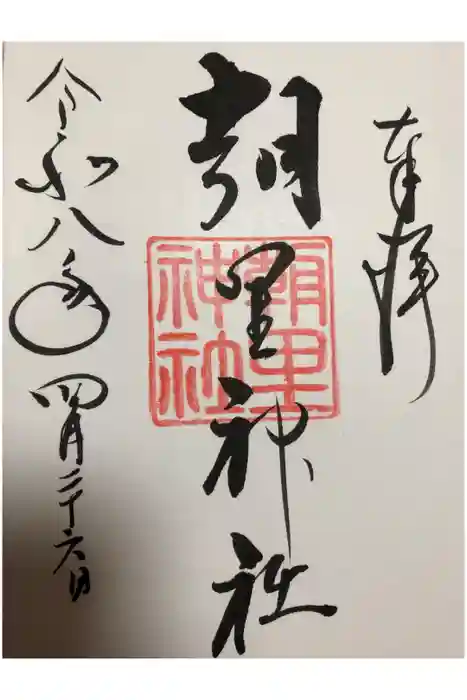 奉拝
朝里神社
朝里
神社
令和八年
四月二十六日